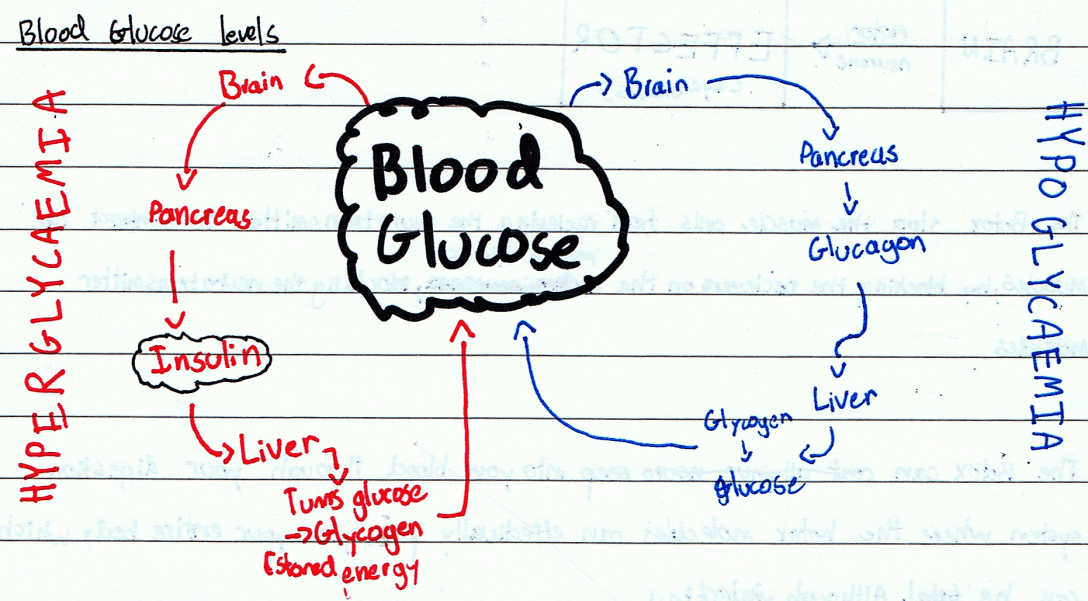 Blood Glucose levels
HYPERGLYCAEMIA
Brain
Pancreas
Insulin
Liver
Turns glucose
→Glycogen
(stored energy
Blood
Glucose
Brain
Pancreas
Glucagon
Liver
Glycogen
glucose
HYPOGLYCAEMIA